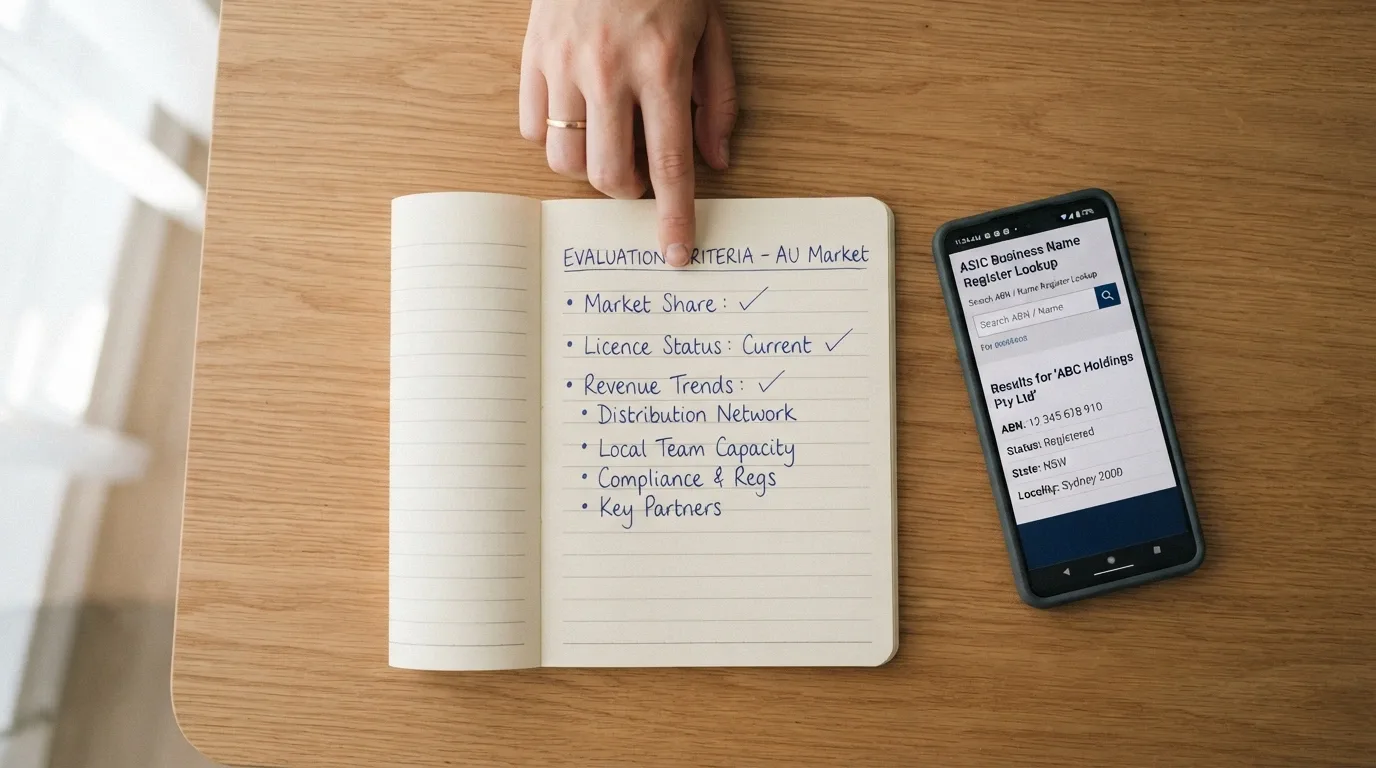 EVALUATION CRITERIA – AU Market
• Market Share : ✓
• Licence Status : Current ✓
• Revenue Trends : ✓
• Distribution Network
• Local Team Capacity
• Compliance & Regs
• Key Partners
ASIC Business Name
Register Lookup
Search ABN / Name Register Lookup
Search ABN / Name
For
Results for 'ABC Holdings
Pty Ltd'
ABN: 345 678 910
Status: Registered
State: NSW
Sydney 2000